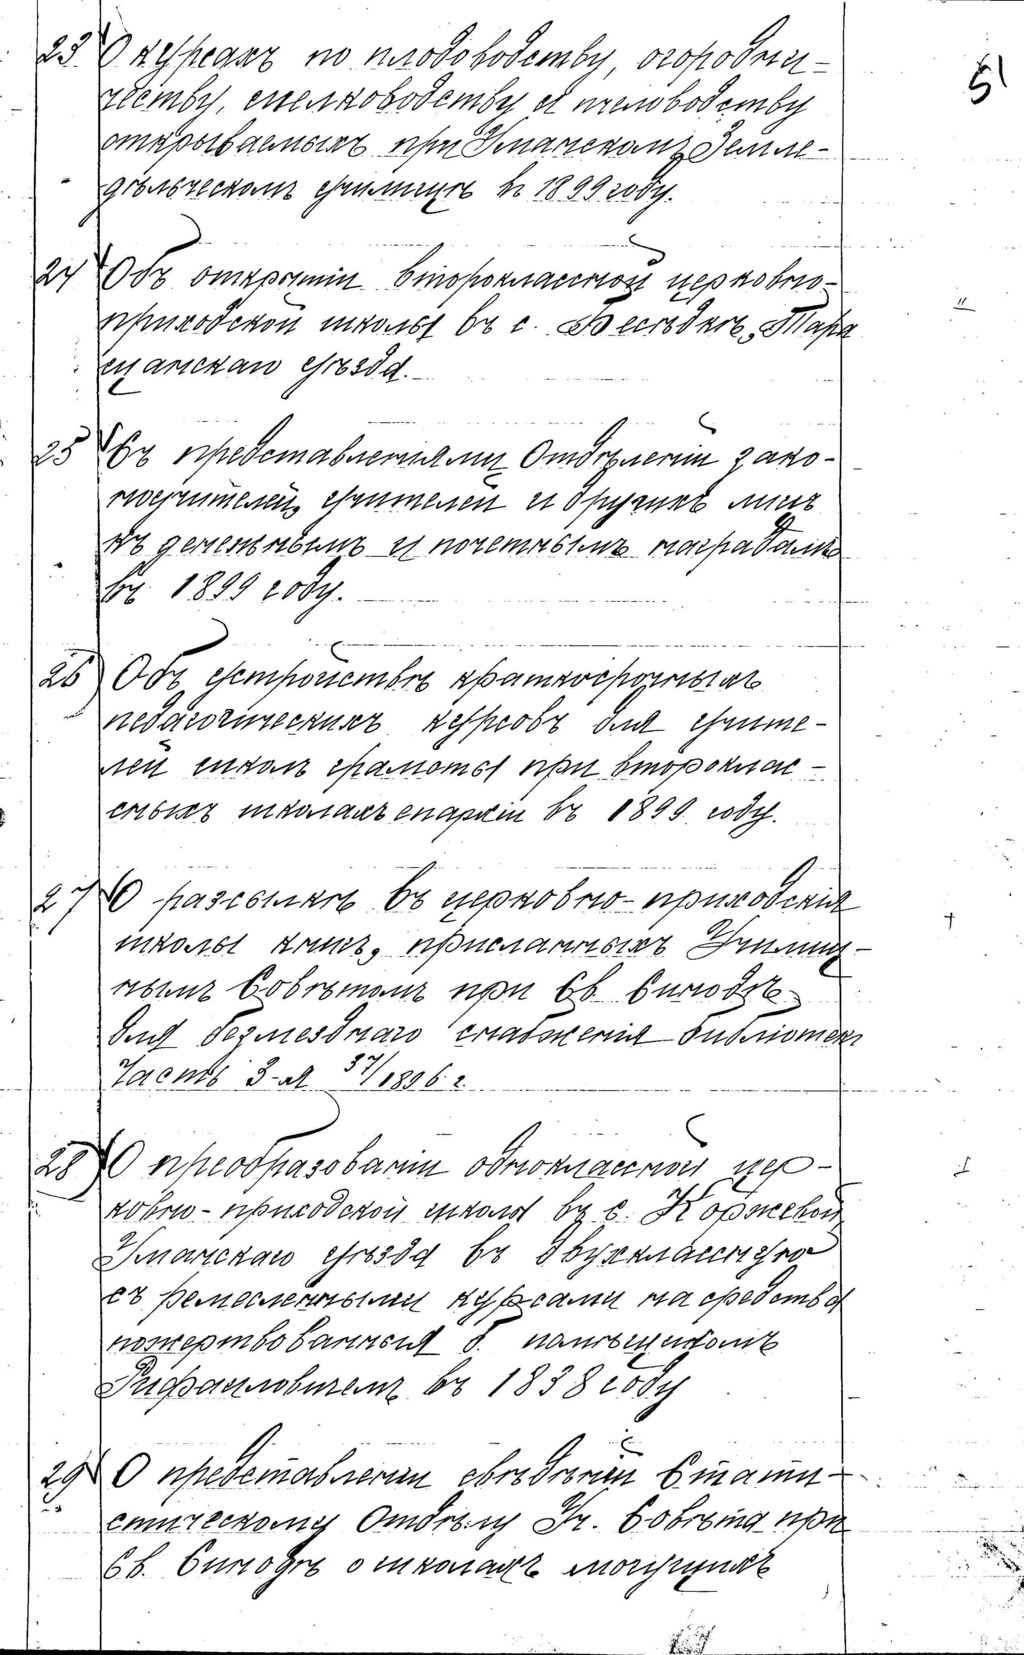 51
23 О курсахъ по плодоводству, огородни-
честву, шелководству и пчеловодству
открываемыхъ при Уманскомъ Земле-
дѣльческомъ училищѣ въ 1899 году.
24 Объ открытіи второклассной церковно-
приходской школы въ с. Бесѣдкѣ, Тара
щанскаго уѣзда.
25 Съ представленіями Отдѣленій зако-
ноучителей, учителей и другихъ лицъ
къ денежнымъ и почетнымъ наградамъ
въ 1899 году.
26 Объ устройствѣ краткосрочныхъ
педагогическихъ курсовъ для учите-
лей школъ грамоты при второклас-
сныхъ школахъ епархіи въ 1899 году.
27 О разсылкѣ въ церковно-приходскія
школы книгъ, присланныхъ Училищ-
нымъ Совѣтомъ при Св. Синодѣ
для безмезднаго снабженія библіотекъ
Часть 3-я 37/1896 г.
28 О преобразованіи одноклассной цер-
ковно-приходской школы въ с. Коржевой
Уманскаго уѣзда въ двухклассную
съ ремесленными курсами на средства
пожертвованныя б. помѣщикомъ
въ 1838 году
29 О представленіи свѣдѣній Стати-
стическому Отдѣлу Уч. Совѣта при
Св. Синодѣ о школахъ могущихъ